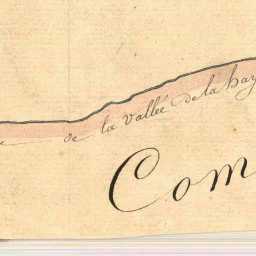 de la vallée de la hay
Com